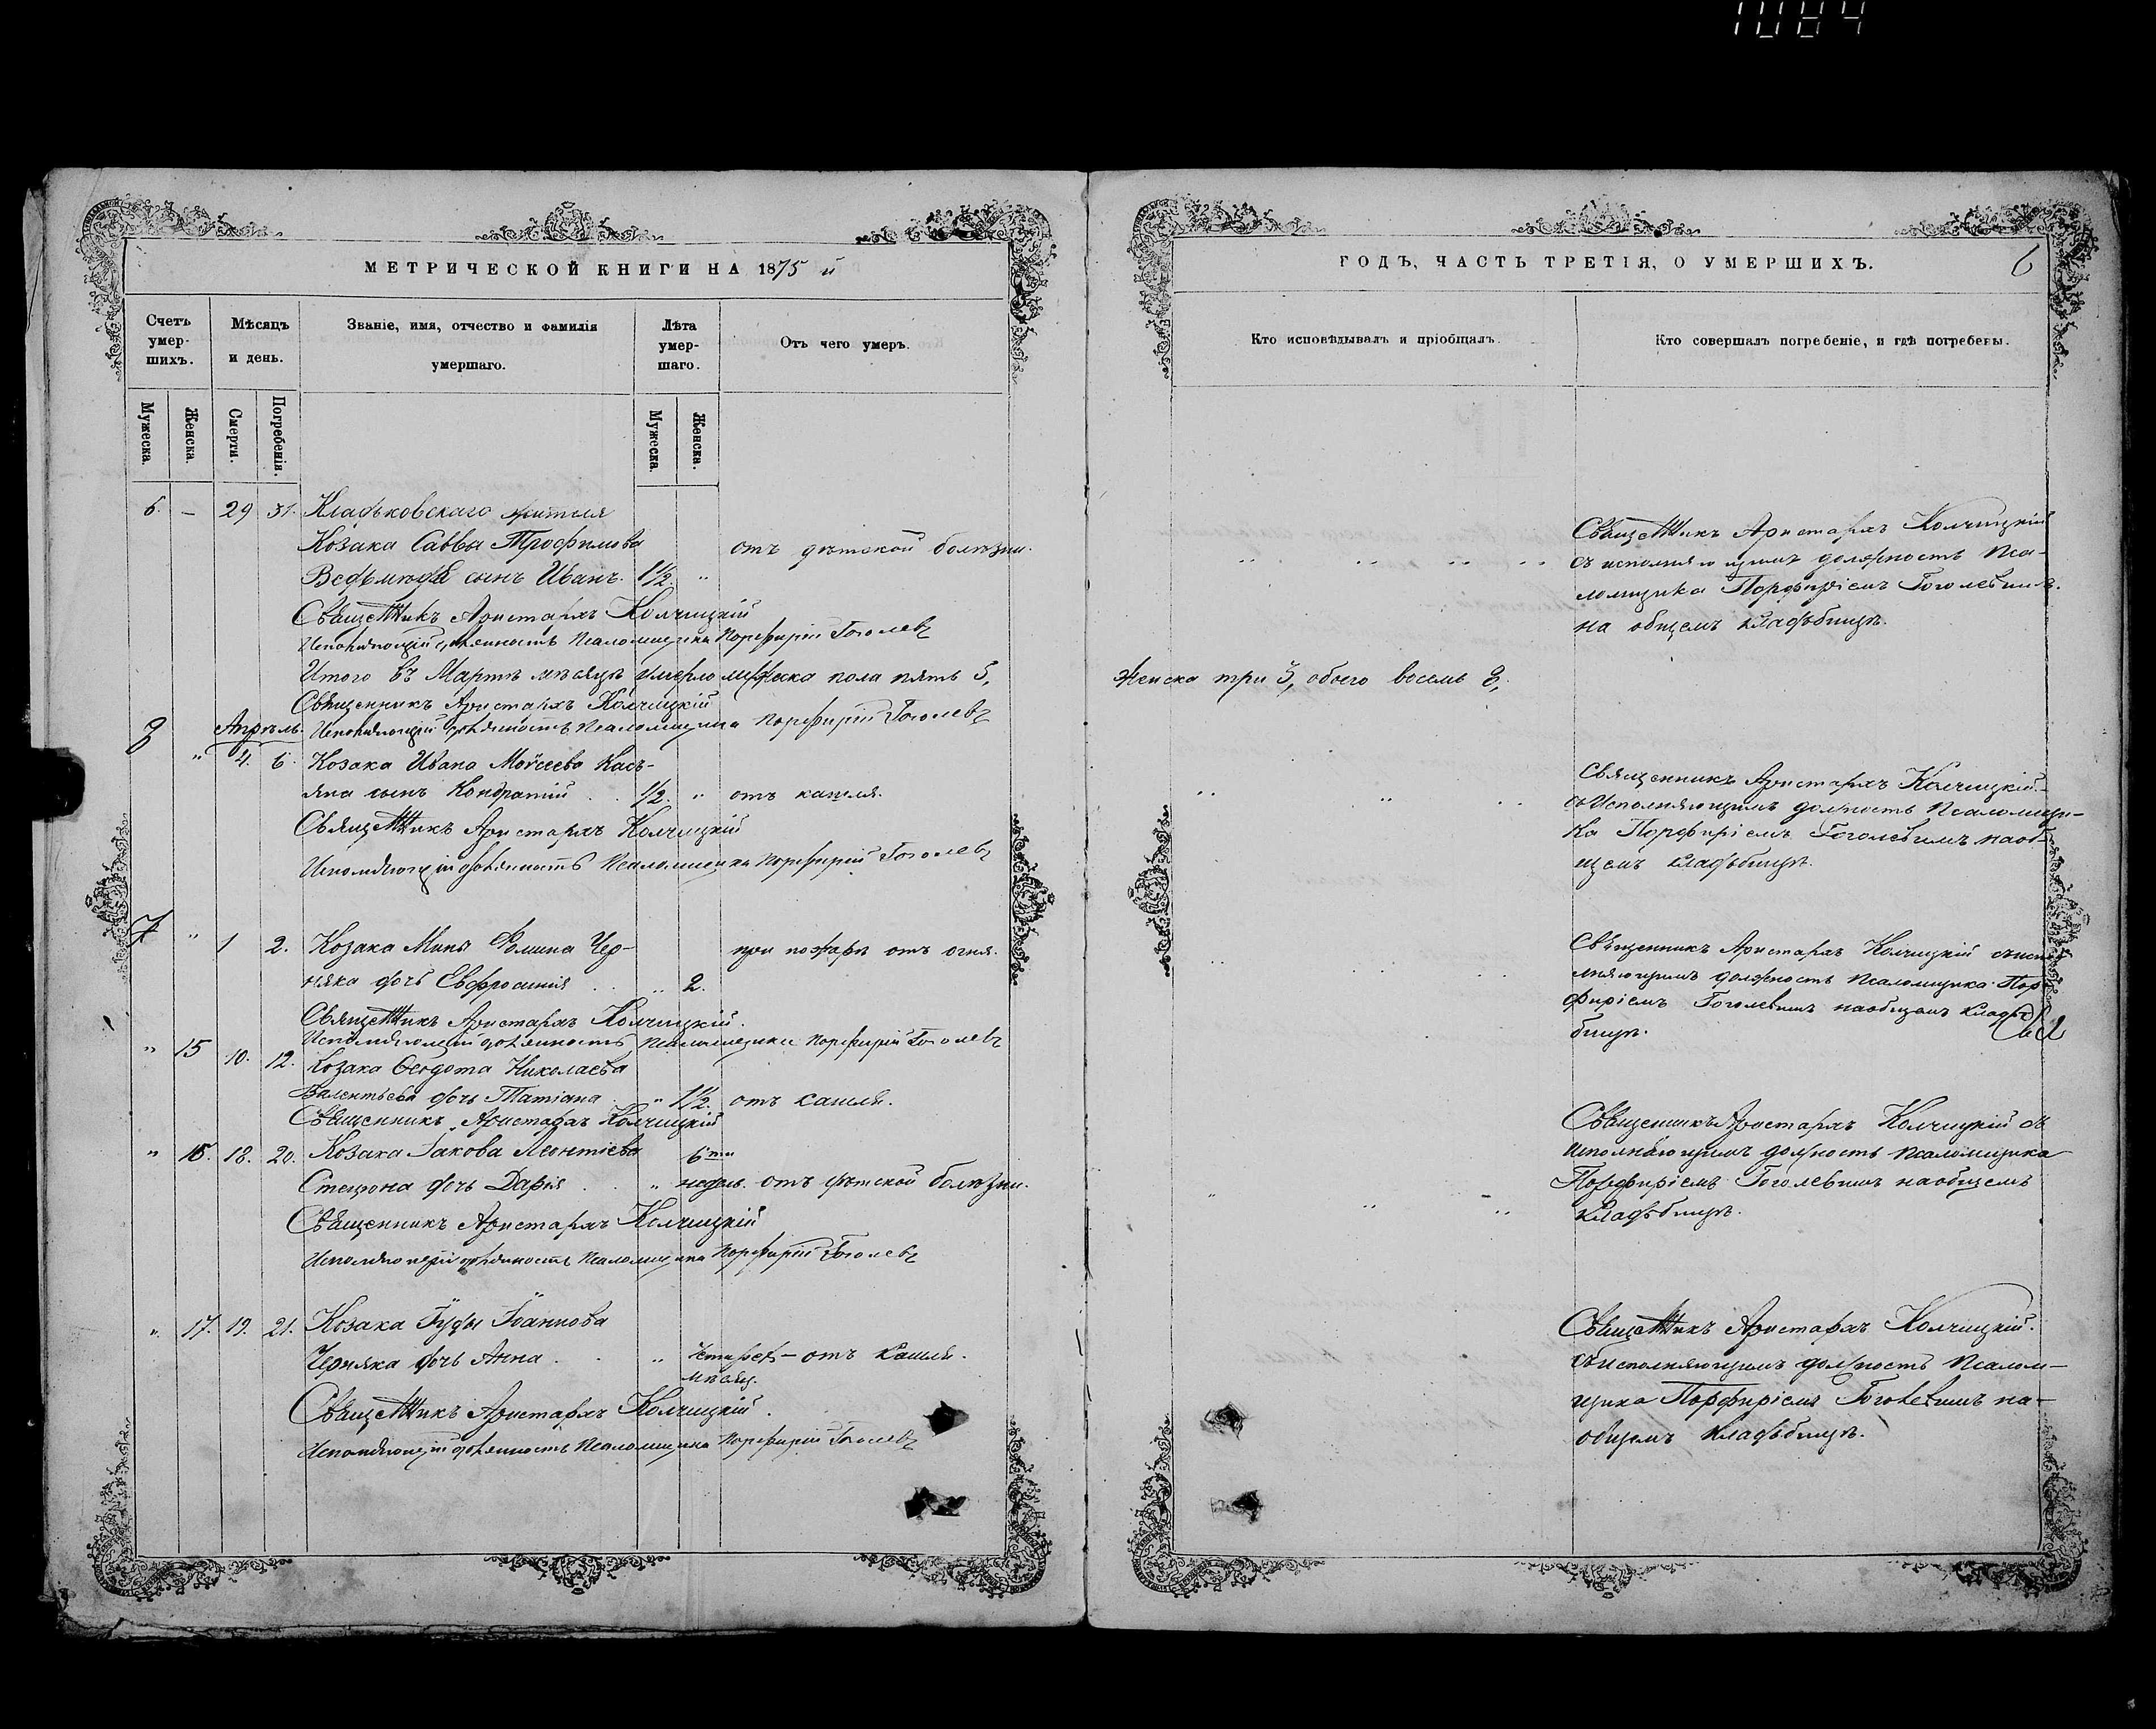 1084
МЕТРИЧЕСКОЙ КНИГИ НА 1875 й
Счетъ умер-шихъ.
Мѣсяцъ и день.
Званіе, имя, отчество и фамилія умершаго.
Лѣта умер-шаго.
Отъ чего умеръ.
Мужеска.
Женска.
Смерти.
Погребенія.
Мужеска.
Женска.
6. — 29 31. Кладьковскаго жителя
Козака Саввы Трофимова отъ дѣтской болѣзни.
сынъ Иванъ. 1½. "
Священникъ Аристархъ Колчицкій
Исполняющій должность Псаломщика Порфирій Гоголевъ
Итого въ Мартѣ мѣсяцѣ умерло мужеска пола пять 5,
Священникъ Аристархъ Колчицкій
Апрѣль. Исполняющій должность Псаломщика Порфирій Гоголевъ
" 4. 6. Козака Ивана Моѵсеева Кась-
яна сынъ Кондратій . . ½. " отъ кашля.
Священникъ Аристархъ Колчицкій
Исполняющій должность Псаломщика Порфирій Гоголевъ
7 " 1 2. Козака Мины Фомина Чер- при пожарѣ отъ огня.
няка дочь Евфросинія . . " 2.
Священникъ Аристархъ Колчицкій.
Исполняющій должность Псаломщика Порфирій Гоголевъ
" 15 10. 12. Козака Ѳеодота Николаева
дочь Татіана . " 1½. отъ кашля.
Священникъ Аристархъ Колчицкій
" 16. 18. 20. Козака Іакова Леонтіева 6ти
дочь Дарія . . " недѣль. отъ дѣтской болѣзни.
Священникъ Аристархъ Колчицкій
Исполняющій должность Псаломщика Порфирій Гоголевъ
" 17. 19. 21. Козака Іуды Іоаннова
Черняка дочь Анна . . " Четырех- отъ кашля.
мѣсяц.
Священникъ Аристархъ Колчицкій.
Исполняющій должность Псаломщика Порфирій Гоголевъ
ГОДЪ, ЧАСТЬ ТРЕТІЯ, О УМЕРШИХЪ.
6
Кто исповѣдывалъ и пріобщалъ.
Кто совершалъ погребеніе, и гдѣ погребены.
Священникъ Аристархъ Колчицкій
съ исполняющимъ должность Пса-
ломщика Порфиріемъ Гоголевимъ.
на общемъ кладьбищѣ.
Женска три 3, обоего восемь 8,
Священникъ Аристархъ Колчицкій
съ Исполняющимъ должность Псаломщи-
ка Порфиріемъ Гоголевимъ наоб-
щемъ кладьбищѣ.
Священникъ Аристархъ Колчицкій съиспо-
лняющимъ должность Псаломщика Пор-
фиріемъ Гоголевимъ наобщемъ кладь-
бищѣ.
Священникъ Аристархъ Колчицкій съ
исполняющимъ должность Псаломщика
Порфиріемъ Гоголевимъ наобщемъ
кладьбищѣ.
Священникъ Аристархъ Колчицкій.
съисполняющимъ должность Псалом-
щика Порфиріемъ Гоголевимъ на-
общемъ кладьбищѣ.